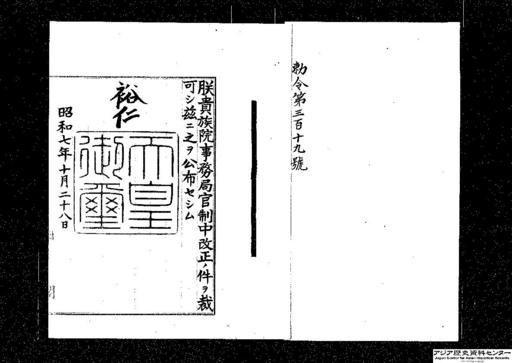 勅令第三百十九號
朕貴族院事務局官制中改正ノ件ヲ裁
可シ茲ニ之ヲ公布セシム
裕仁
天皇
御璽
昭和七年十月二十八日
アジア歴史資料センター
Japan Center for Asian Historical Records